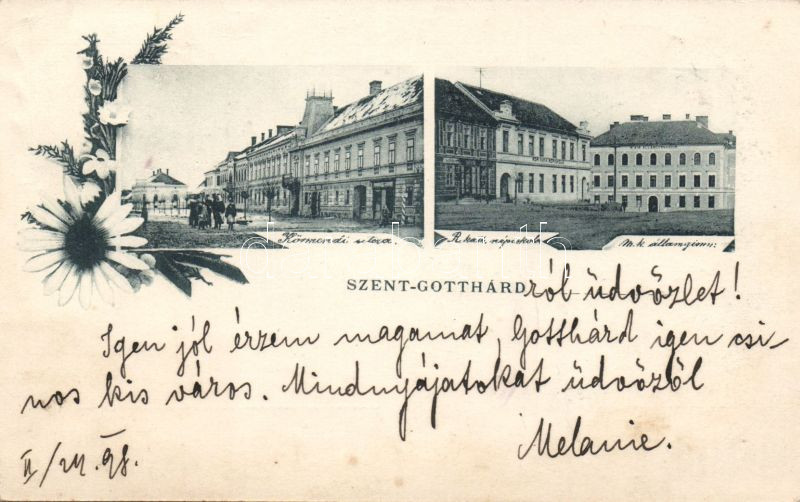 Körmendi utca.
R. kath. népiskola
M. k. államgimn:
SZENT-GOTTHÁRD ról üdvözlet!
Igen jól érzem magamat, Gotthárd igen csi-
nos kis város. Mindnyájatokat üdvözöl
Melanie.
98.